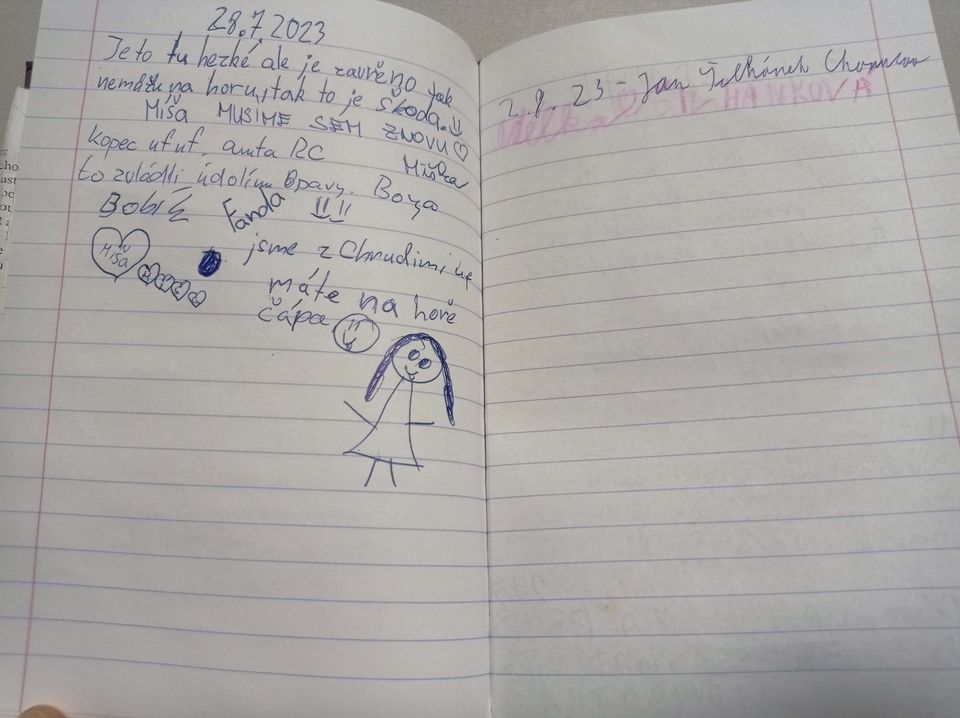 28.7.2023
Je to tu hezké ale je zavřeno tak
nemůžu na horu, tak to je škoda.
Míša MUSIME SEM ZNOVU
kopec uf uf, auta RC
Miška
to zvládli údolím Opavy.
BobíČ Fanda
Míša
jsme z Chrudimi
máte na hoře
čápa
2.8. 23 - Jan